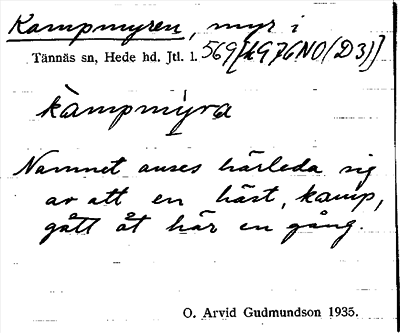 Kampmyren, myr i
Tännäs sn, Hede hd. Jtl. l. 569 [k976NO(D3)]
kampmyra
Namnet anses härleda sig
av att en häst, kamp,
gått åt här en gång.
O. Arvid Gudmundson 1935.